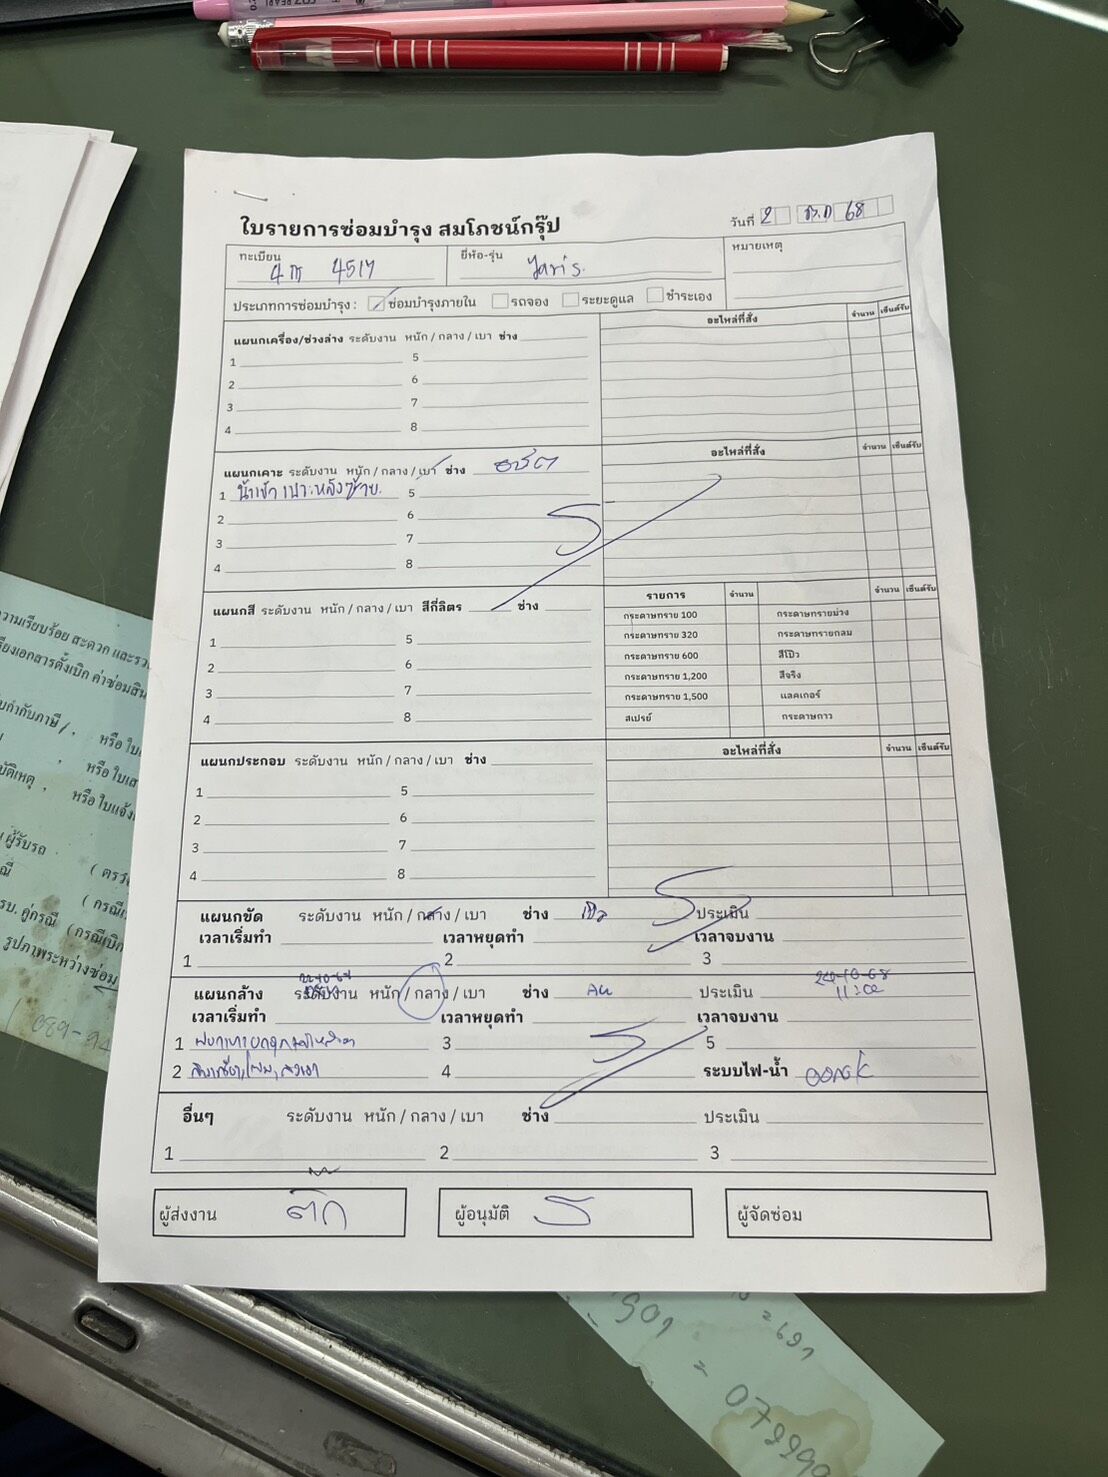 ใบรายการซ่อมบำรุง สมโภชน์กรุ๊ป
วันที่ 2 ต.ค 68
ทะเบียน 4517
ยี่ห้อ-รุ่น Yaris.
หมายเหตุ
ประเภทการซ่อมบำรุง : ซ่อมบำรุงภายใน รถจอง ระยะดูแล ชำระเอง
แผนกเครื่อง/ช่วงล่าง ระดับงาน หนัก / กลาง / เบา ช่าง
อะไหล่ที่สั่ง จำนวน เซ็นต์รับ
1 5
2 6
3 7
4 8
แผนกเคาะ ระดับงาน หนัก / กลาง / เบา ช่าง
อะไหล่ที่สั่ง จำนวน เซ็นต์รับ
1 น้ำเข้า เบาะหลังซ้าย. 5
2 6
3 7
4 8
แผนกสี ระดับงาน หนัก / กลาง / เบา สีกี่ลิตร ช่าง
รายการ จำนวน จำนวน เซ็นต์รับ
1 5
2 6
3 7
4 8
กระดาษทราย 100 กระดาษทรายม่วง
กระดาษทราย 320 กระดาษทรายกลม
กระดาษทราย 600 สีโป๊ว
กระดาษทราย 1,200 สีจริง
กระดาษทราย 1,500 แลคเกอร์
สเปรย์ กระดาษกาว
แผนกประกอบ ระดับงาน หนัก / กลาง / เบา ช่าง
อะไหล่ที่สั่ง จำนวน เซ็นต์รับ
1 5
2 6
3 7
4 8
แผนกขัด ระดับงาน หนัก / กลาง / เบา ช่าง ประเมิน
เวลาเริ่มทำ เวลาหยุดทำ เวลาจบงาน
1 2 3
แผนกล้าง ระดับงาน หนัก / กลาง / เบา ช่าง ประเมิน
เวลาเริ่มทำ เวลาหยุดทำ เวลาจบงาน
1 3 5
2 4 ระบบไฟ-น้ำ
อื่นๆ ระดับงาน หนัก / กลาง / เบา ช่าง ประเมิน
1 2 3
ผู้ส่งงาน ติ๊ก
ผู้อนุมัติ
ผู้จัดซ่อม